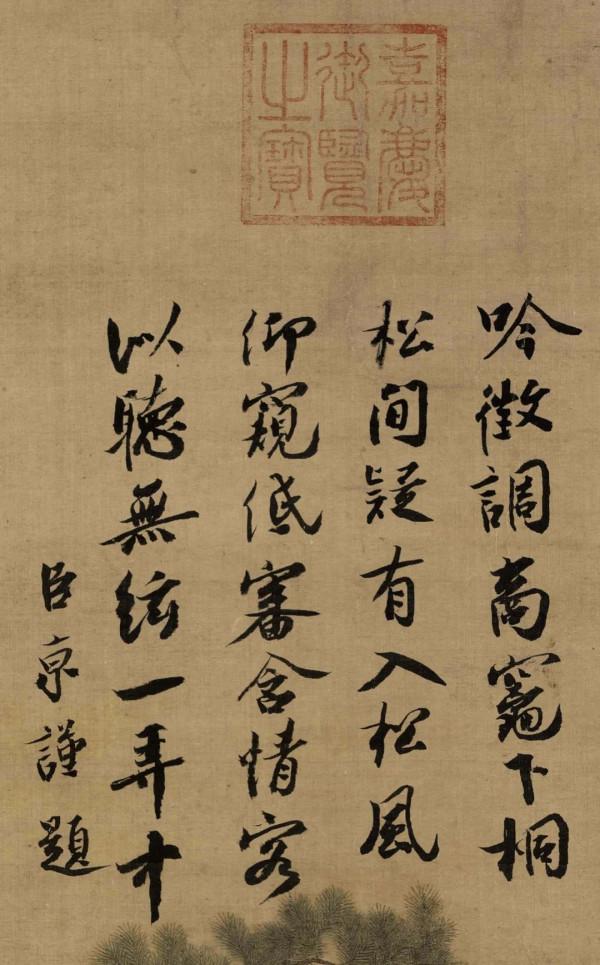 嘉慶
御覽
之寶
吟徵調商竈下桐
松間疑有入松風
仰窺低審含情客
似聽無絃一弄中
臣京謹題